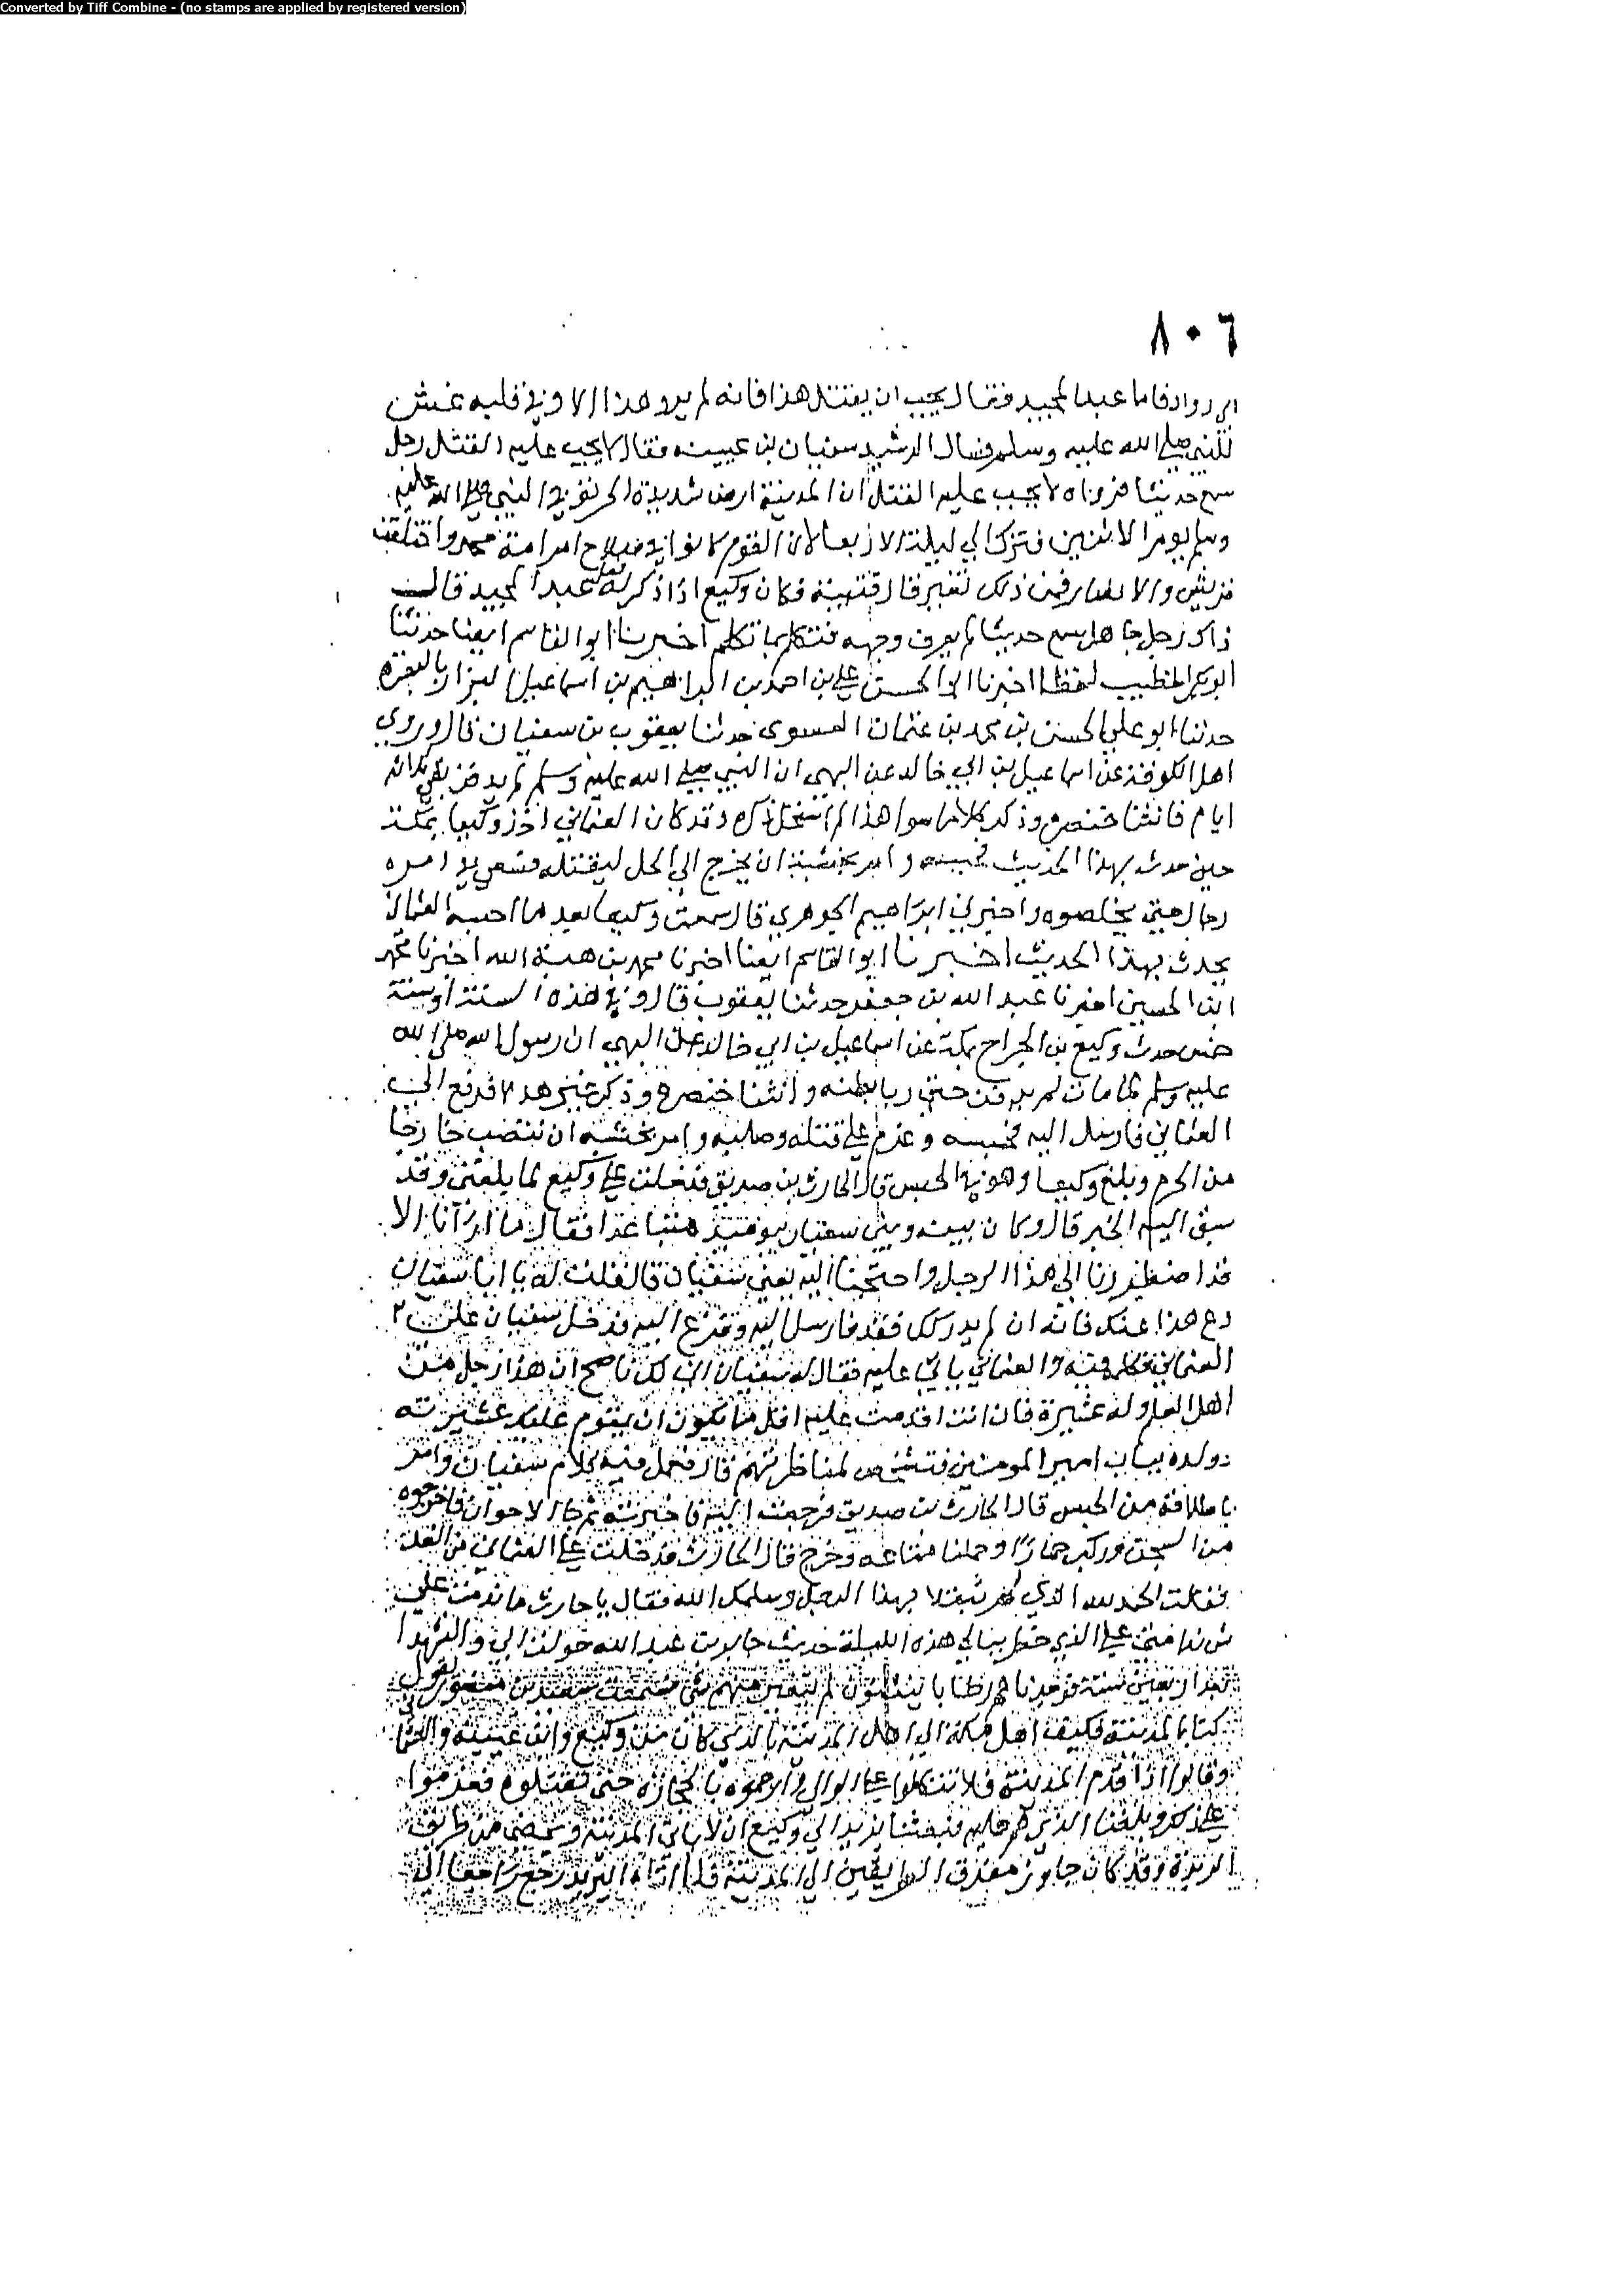 Converted by Tiff Combine - (no stamps are applied by registered version)
٨٠٦
ابي رواد فاما عبد المجيد فقال يجب ان يقتل هذا فانه لم يرو هذا الا وفي قلبه غش
للنبي صلى الله عليه وسلم فسال الرشيد سفيان بن عيينه فقال لا يجب عليه القتل رجل
سمع حديثا فرواه لا يجب عليه القتل ان المدينة ارض شديدة الحر توفي النبي صلى الله عليه
وسلم يوم الاثنين فترك الى ليلة الاربعا لان القوم كانوا في صلاح امر امة محمد واختلفت
قريش والانصار فمن ذلك تغير قال قتيبة فكان وكيع اذا ذكر له فعل عبد المجيد قال
ذاك رجل جاهل سمع حديثا لم يعرف وجهه فتكلم بما تكلم اخبرنا ابو القاسم ايضا حدثنا
ابو بكر الخطيب لفظا اخبرنا ابو الحسن علي بن احمد بن ابراهيم بن اسماعيل البزار بالبصرة
حدثنا ابو علي الحسن بن محمد بن عثمان الفسوى حدثنا يعقوب بن سفيان قال وروى
اهل الكوفة عن اسماعيل بن ابي خالد عن البهي ان النبي صلى الله عليه وسلم لم يدفن
ايام فانثنا خنصره وذكر كلاما سوا هذا لم استحل ذكره وقد كان العثماني اخذ وكيعا بمكة
حين حدث بهذا الحديث فحبسه وامر بخشبة ان يخرج الى الحل ليقتله فسعى في امره
رجال حتى يخلصوه واخبرني ابراهيم الجوهري قال سمعت وكيعا بعد ما احبسه العثماني
يحدث بهذا الحديث اخبرنا ابو القاسم ايضا اخبرنا محمد بن هبة الله اخبرنا محمد
ابن الحسين اخبرنا عبد الله بن جعفر حدثنا يعقوب قال وفي هذه السنة او سنة
خمس حدث وكيع بن الجراح بمكة عن اسماعيل بن ابي خالد عن البهي ان رسول الله صلى الله
عليه وسلم لما مات لم يدفن حتى ربا بطنه وانثنا خنصره وذكر غير هذا فرفع الى
العثماني فارسل اليه فحبسه وعزم على قتله وصلبه وامر بخشبة ان تنصب خارجا
من الحرم وبلغ وكيعا وهو في الحبس قال الحارث بن صديق فدخلت على وكيع لما بلغني وقد
سبق اليه الخبر قال وكان بينه وبين سفيان يومئذ متباعدا فقال ما ارانا الا
قد اضطررنا الى هذا الرجل واحتجنا اليه يعني سفيان قال فقلت له يا ابا سفيان
دع هذا عنك فانه ان لم يدركك فقد فارسل اليه وتفزع اليه فدخل سفيان على
العثماني فكلمه فيه والعثماني يابى عليه فقال له سفيان اني لك ناصح ان هذا رجل من
اهل العلم وله عشيرة فان انت اقدمت عليه اقل ما يكون ان يقوم عليك عشيرته
وولده بباب امير المومنين فتشخص لمناظرتهم قال فعمل فيه كلام سفيان وامر
باطلاقه من الحبس قال الحارث بن صديق فرجعت اليه فاخبرته ثم جا الاعوان فاخرجوه
من السجن وركب حمارا وحملنا متاعه وخرج قال الحارث فدخلت على العثماني من الغد
فقلت الحمد لله الذي لم تبتلا بهذا الرجل وسلمك الله فقال يا حارث ما ندمت على
شي ندامتي على الذي خطر ببالي هذه الليلة حديث جابر بن عبد الله حولت ابي والشهدا
بعد اربعين سنة فوجدناهم رطابا يثنون لم يتغير منهم شي فسمعت سعيد بن منصور يقول
كنا بالمدينة فكتب اهل مكة الى اهل المدينة بالذي كان من وكيع وابن عيينه والعثماني
وقالوا اذا قدم المدينة فلا تتكلوا على الوالي وارجموه بالحجارة حتى تقتلوه فعزموا
على ذلك وبلغنا الذي هم عليه فبعثنا بريدا الى وكيع ان لا ياتي المدينة ويمضي من طريق
الربذة وقد كان جاوز مفرق الطريقين الى المدينة فلما اتاه البريد رجع راجعا الى